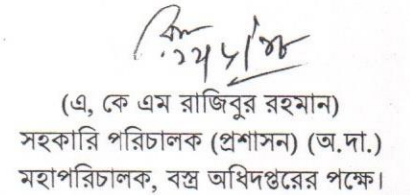 (এ, কে এম রাজিবুর রহমান)
সহকারি পরিচালক (প্রশাসন) (অ.দা.)
মহাপরিচালক, বস্ত্র অধিদপ্তরের পক্ষে।